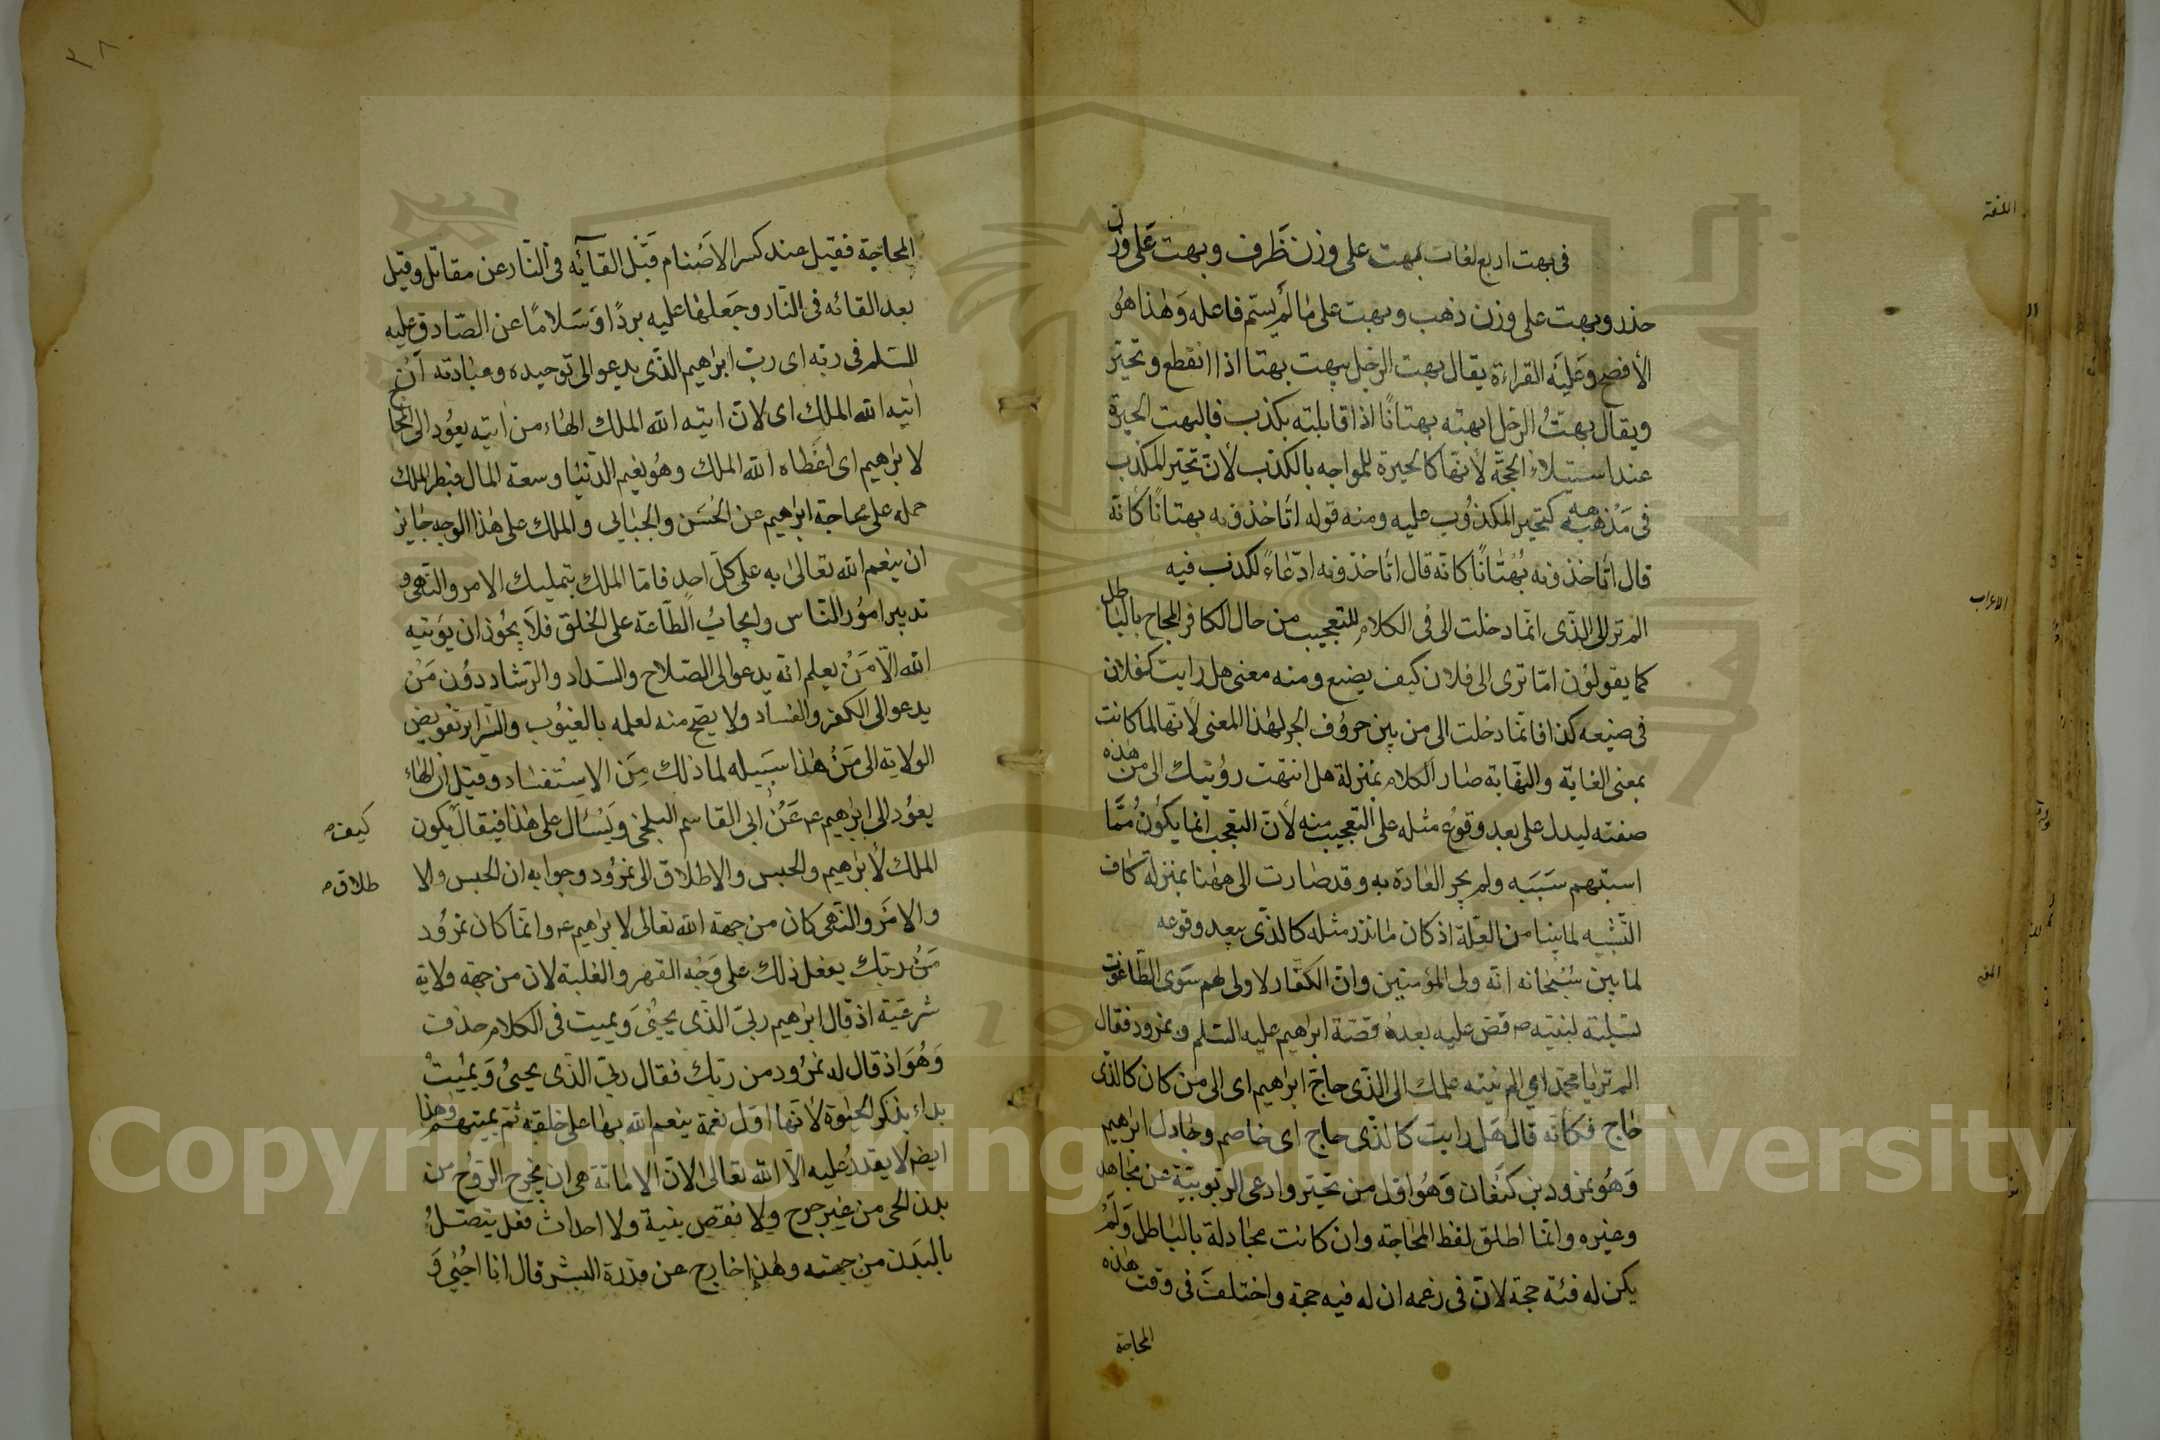 اللغة
في بهت اربع لغات بهت على وزن ظَرف وبهت عَلى وزن
حذر وبهت على وزن ذهب وبهت على ما لَم يسَّم فاعله وَهٰذا هُو
الأفصح وَعَليَه القراءة يقال بهت الرجل يبهت بهتا اذا انقطع وتحيّر
ويقال بهتُّ الرّجل ابهته بهتانًا اذا قابلته بكذب فالبهت الحيرة
عند استيلاء الحجّة لأنّها كالحيرة للمواجه بالكذب لأنّ تحيّر المكذب
في مَذهبه كتحير المكذوُب عليه ومنه قوله اتأخذونه بهتانًا كانّه
قال اتأخذونه بُهتٰانًا كانّه قال اتأخذونه ادّعٰاءً لكذب فيه
الاعراب
الم تر الى الذّى انمّا دخلت الى فى الكلام للتعجيب من حال الكافر المحاج بالبٰاطل
كما يقولوُن امّا ترى الى فلان كيف يصنع ومنه معنى هل رايت كفلان
فى صنيعه كذا فانّما دخلت الى من بين حروُف الجر لهٰذا المعنى لأنّها لما كانت
بمعنى الغاية والنّهاية صٰار الكلام بمنزلة هل انتهت رؤيتك الى من هٰذه
صفته ليدل على بعد وقوُع مثله على التعجيب منه لأن التعجب انما يكوُنُ ممَّا
استبهم سَبَبه ولم يجر العٰادة به وقد صٰارت الى هٰهنا بمنزلة كٰاف
التّشبيه لما بينا من العلّة اذ كان مٰا نزر مثله كالذّى يبعد وقوعه
المعنى
لما بين سُبحٰانه انّه ولى المؤمنين وانّ الكفّار لا ولى لهم سَوى الطّاغوُت
تسلية لنبيّه ص قص عليه بعدهُ قصّة ابراهيم عليه السّلم ونمروُد فقال
الم تر يٰا محمّد اى الم ينته علمك الى الذّى حاجّ ابراهيم اى الى من كان كالذّى
حٰاج فكأنّه قال هَل رايت كالذّى حاج اى خاصم وجٰادل ابرٰهيم
وَهُو نمروُد بن كنعٰان وَهُو اوّل من تجبّر وادعى الربّوبيّة عن مجٰاهد
وغيره وانّما اطلق لفظ المحٰاجّة وان كانت مجٰادلة بالبٰاطل وَلَم
يكن له فيه حجّة لانّ فى زعمه ان له فيه حجّة واختلف فى وقت هٰذه
المحاجّة
٣٨
المحاجّة فقيل عند كسر الاَصْنام قَبْل القآئه فى النّار عن مقاتل وقيل
بعد القائه فى النّار وجَعلهٰا عليه بردًا وَسَلامًا عن الصّادق عليه
السّلم فى ربّه اى ربّ ابرٰهيم الذّى يدعو الى توحيده وعبٰادته اَنْ
اٰتيه الله الملك اى لانّ اتيه الله الملك الهٰاء من اٰتيه يعوُد الى المحٰاج
لابرٰهيم اى اعَطاه الله الملك وهُو نعيم الدّنيٰا وسعة المال فبطر الملك
حمله على محاجة ابرٰهيم عن الحُسَن والجبٰايى والملك على هٰذا الوجه جٰايز
ان ينعم الله تعالىٰ به على كلّ احدٍ فامّا الملك بتمليك الامر والنّهى و
تدبير اموُر النّاس وايجابُ الطّاعَة على الخلق فلاَ يجُوز ان يؤتيه
الله الاّ مَنْ يعلم انّه يدعو الى الصّلاح والسّداد والرّشاد دوُن مَنْ
يدعو الى الكفر والفسٰاد ولا يصّح منه لعلمه بالغيُوب والسّراير تفويض
الولاية الى مَنْ هٰذا سبَيله لما ذلك مِنَ الاِسْتفسٰاد وقيل ان الهٰاء
يعوُد الى ابرٰهيم ع عَنْ ابى القاسم البلخى ويَسْأل على هٰذا فيقال يكون
كيف ص
الملك لأبرٰهيم والحبس والاطلاق الى نمروُد وجوابه ان الحبس والا
طلاق ص
والامر والنّهى كان من جهة الله تعالى لابرٰهيم ع وانّما كان نمروُد
مَنْ ربّك يفعل ذلك على وَجْه القهر والغلبة لا من جهة ولاية
شرعيّة اذ قال ابرٰهيم ربّى الذّى يحيى وَيميت فى الكلام حذف
وَهُوَ اذ قال له نمروُد من ربّك فقال ربّى الذّى يحيىُ وَيميتُ
بداء بذكر الحيٰوة لأنّها اوّل نعمة ينعم الله بهٰا على خلقه ثم يميتهم وهٰذا
ايضا لا يقدرُ عليه الاّ الله تعالى لانّ الامٰاتة هى ان يخرج الرّوُح من
بدن الحى من غير جرح ولا نقص بنية ولا احداث فعل يتصّلُ
بالبَدَن من جهته وهٰذا خارج عن قدرة البشر قال انا احيُى وَ